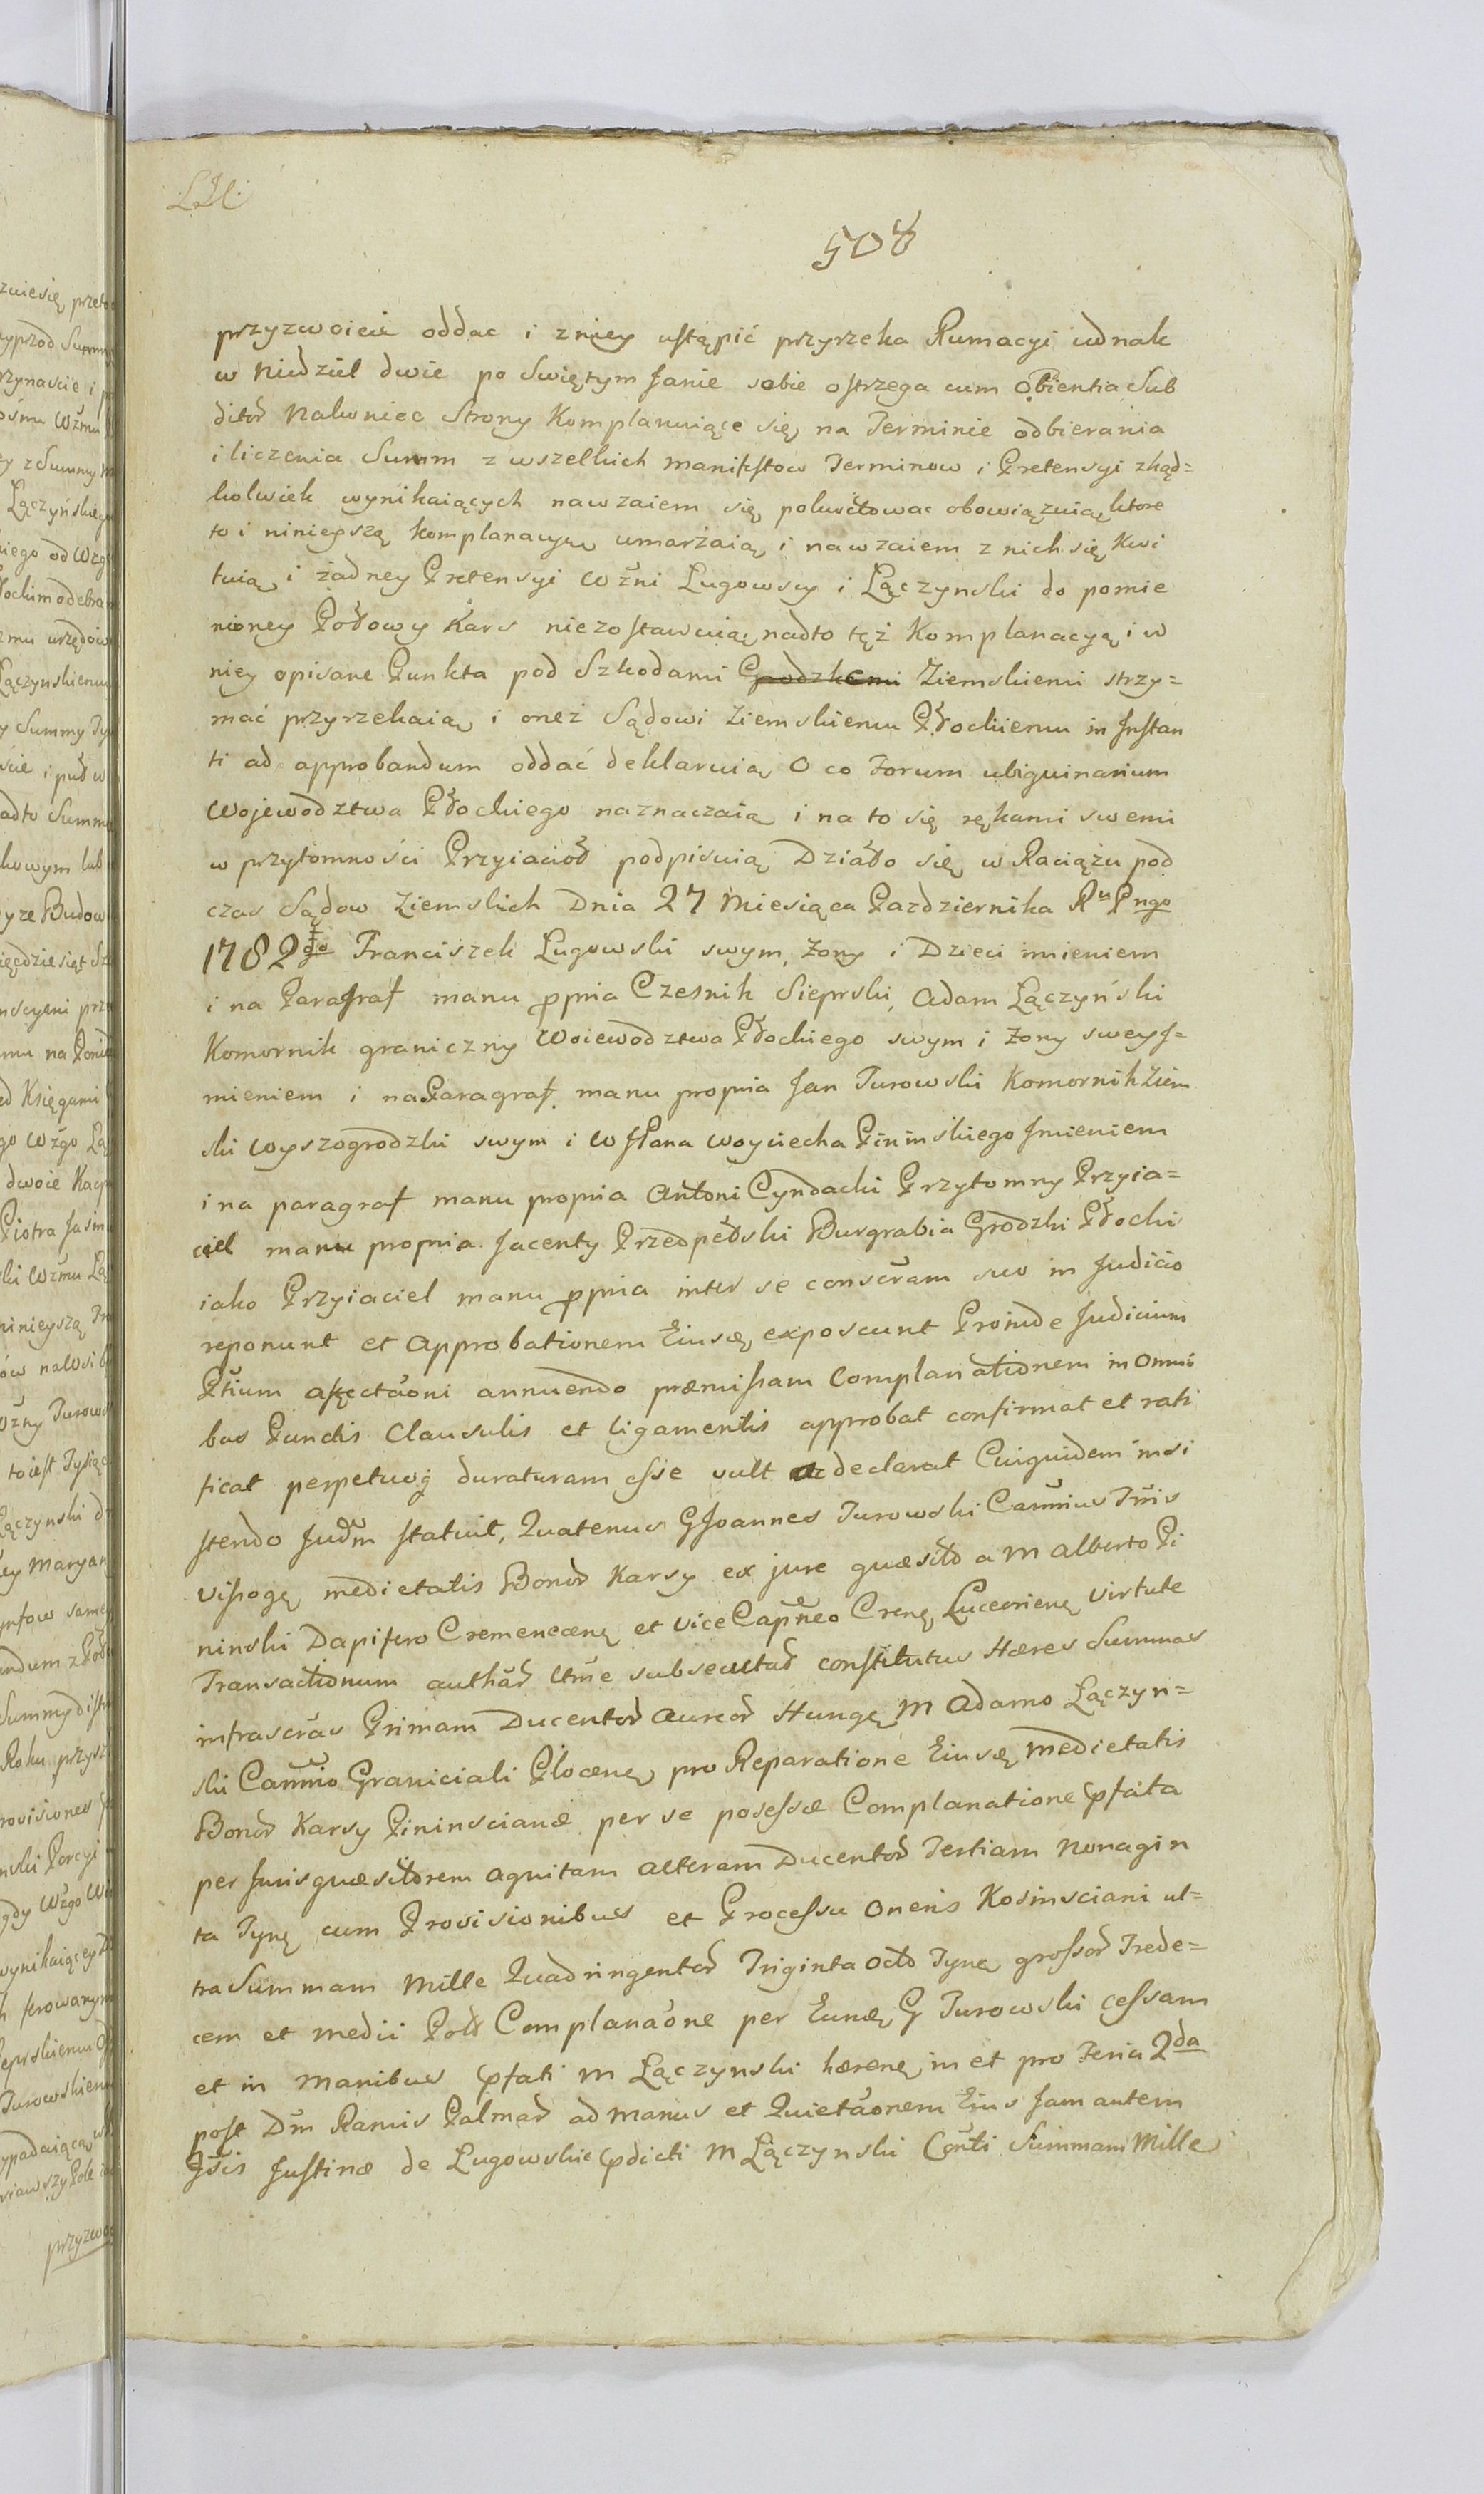 508
przyzwoicie oddac i zniey ustąpić przyrzeka Rumacyi iednak
w niedziel dwie po Swiętym Janie sobie ostrzega cum obientia Sub
ditor Nakoniec Strony Komplanuiące się na Terminie odbierania
i liczenia Summ z wszelkich manifestow Terminow i Pretensyi zkąd=
kolwiek wynikaiących nawzaiem się pokwitowac obowiązuią ktore
to i ninieyszą komplanacyą umarzaią i nawzaiem z nich się Kwi
tuią i żadney Pretensyi Wżni Lugowscy i Łączynski do pomie
nioney Połowy Kars niezostawuią nadto tęż Komplanacyą i w
niey opisane Punkta pod Szkodami Grodzkemi Ziemskiemi strzy=
mać przyrzekaią i oneż Sądowi Ziemskiemu Płockiemu in Instan
ti ad approbandum oddać deklaruią O co Forum ubiquinarium
Wojewodztwa Płockiego naznaczaią i na to się rękami swemi
w przytomności Przyiacioł podpisuią Działo się w Raciążu pod
czas Sądow Ziemskich Dnia 27 Miesiąca Pazdziernika Ru Pngo
1782go Franciszek Lugowski swym, żony i Dzieci imieniem
i na Paragraf manu ppria Czesnik Sieprski, Adam Łączyński
Komornik graniczny Woiewodztwa Płockiego swym i żony swey J=
mieniem i na Paragraf manu propria Jan Turowski Komornik Ziem
ski Wyszogrodzki swym i W JPana Woyciecha Pininskiego Jmieniem
i na paragraf manu propria Antoni Cyndacki Przytomny Przyia=
ciel manu propria Jacenty Przedpełski Burgrabia Grodzki Płocki
iako Przyiaciel manu ppria inter se conscram suo in Judicio
reponunt et approbationem Eiusę exposcunt Proinde Judicium
Pñum affectãoni annuendo præmissam Complanationem in omni
bus Punctis Clausulis et ligamentis approbat confirmat et rati
ficat perpetuoq duraturam esse vult ac declarat Cuiquidem insi
stendo Judm statuit, Quatenus G Joannes Turowski Camrius Tris
Vissogę medietatis Bonor Karsy ex jure quæsito a M Alberto Pi
ninski Dapifero Cremenecenę et Vice Capneo Crenę Luceorienę virtute
Transactionum authar Utme subsecutar constitutus Hæres Summas
infrascras Primam Ducentor Aureor Hungę M Adamo Łączyn=
ski Camrio Graniciali Plocenę pro Reparatione Eiusę medietatis
Bonor Karsy Pininscianæ per se possessæ Complanatione pfata
per Jurisquæsitorem agnitam alteram Ducentor Tertiam Nonagin
ta Tynę cum Provisionibus et Processu oneris Kosinsciani ul=
tra Summam Mille Quadringentor Triginta octo Tynę grossor Trede=
cem et medii Pold Complanaone per Eundę G Turowski cessam
et in manibus pfati M Łączynski hærenę in et pro Feria 2da
post Dm Ramis Palmar ad manus et Quietãonem Eius Jam autem
Justinæ de Lugowskie pdicti M Łączynski Summam Mille